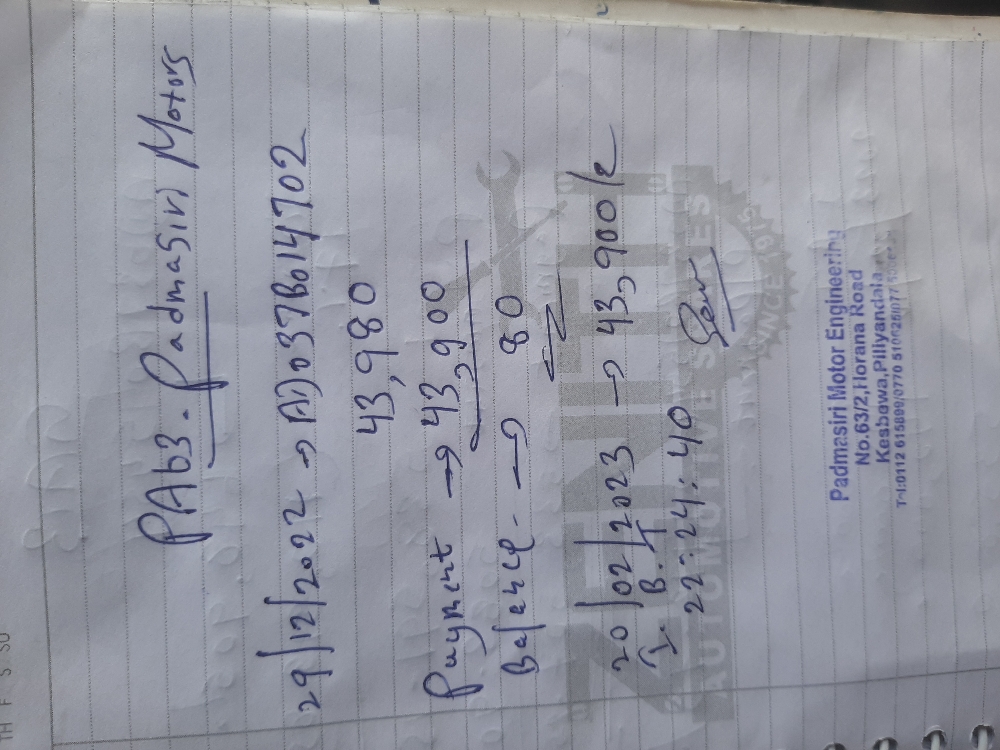 TH F S SU
PAb3. Padmasiri Motors
29/12/2022 → AD037B014702
43,980
Payment → 43,900
Balance - → 80
20/02/2023 → 43,900/=
I.B.T
22:24:40
ZENITH
AUTOMOTIVE SERVICES
SINCE 1975
Padmasiri Motor Engineering
No.63/2,Horana Road
Kesbewa,Piliyandala